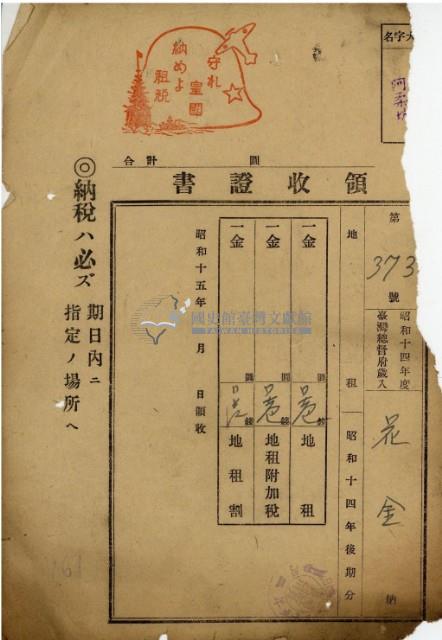 守れ
皇國
納めよ
租税
大字名
合計 圓
領收證書
第 373 號
昭和十四年度
臺灣總督府歳入
花 金 納
地租 昭和十四年後期分
一金 圓 錢 地租
一金 圓 錢 地租附加税
一金 圓 錢 地租割
昭和十五年 月 日領收
◎納税ハ必ズ
期日内ニ
指定ノ場所ヘ
國史館臺灣文獻館
TAIWAN HISTORICA
161